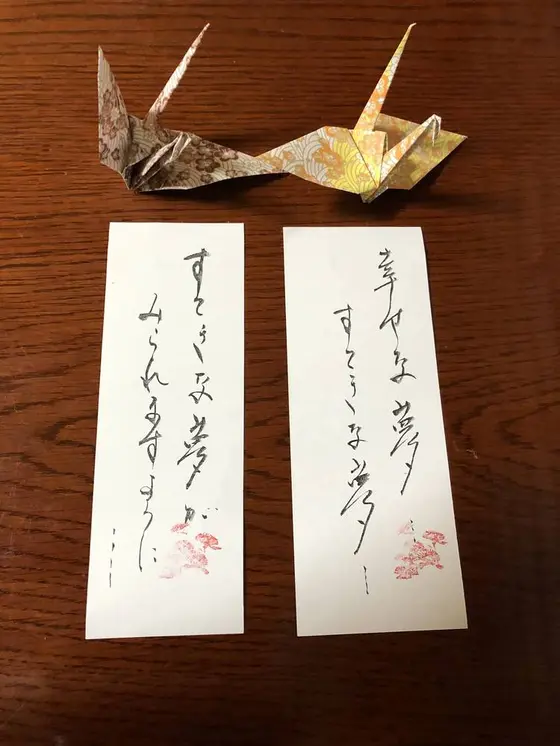 幸せな夢…
すてきな夢…
すてきな夢が
みられますように…